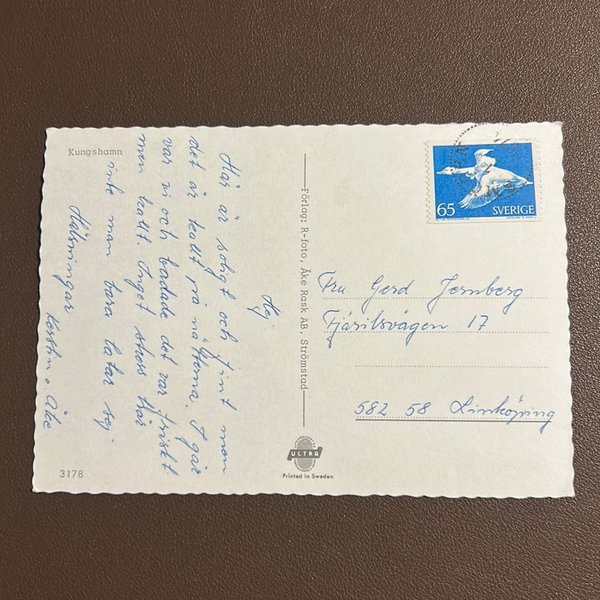 Kungshamn
Hej
Här är soligt och fint men
det är kallt på nätterna. I går
var vi och badade det var friskt
men kallt. Inget stress här
inte man bara latar sej
Hälsningar
Kerstin o Åke
3178
Förlag: R-foto, Åke Rask AB, Strömstad
ULTRA
Printed in Sweden
65 SVERIGE
Fru Gerd Jernberg
Fjärilsvägen 17
582 58 Linköping